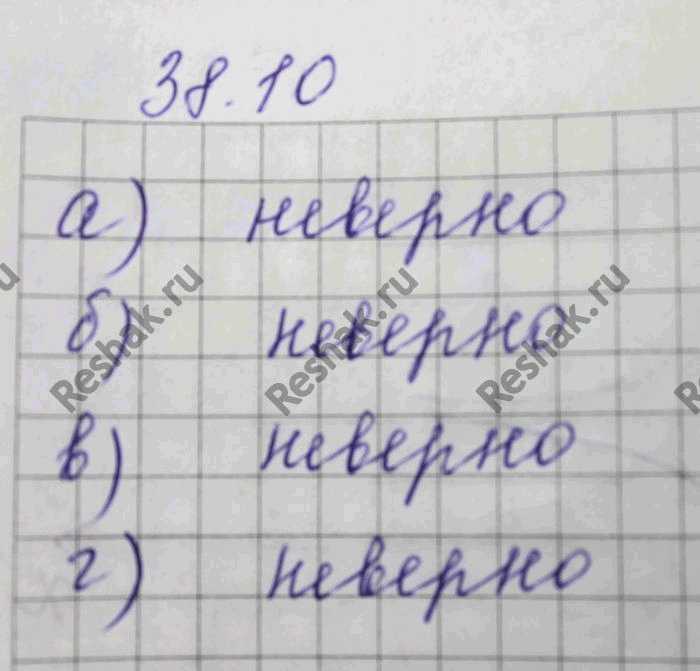 38.10
а) неверно
б) неверно
в) неверно
г) неверно
Reshak.ru
Reshak.ru
Reshak.ru